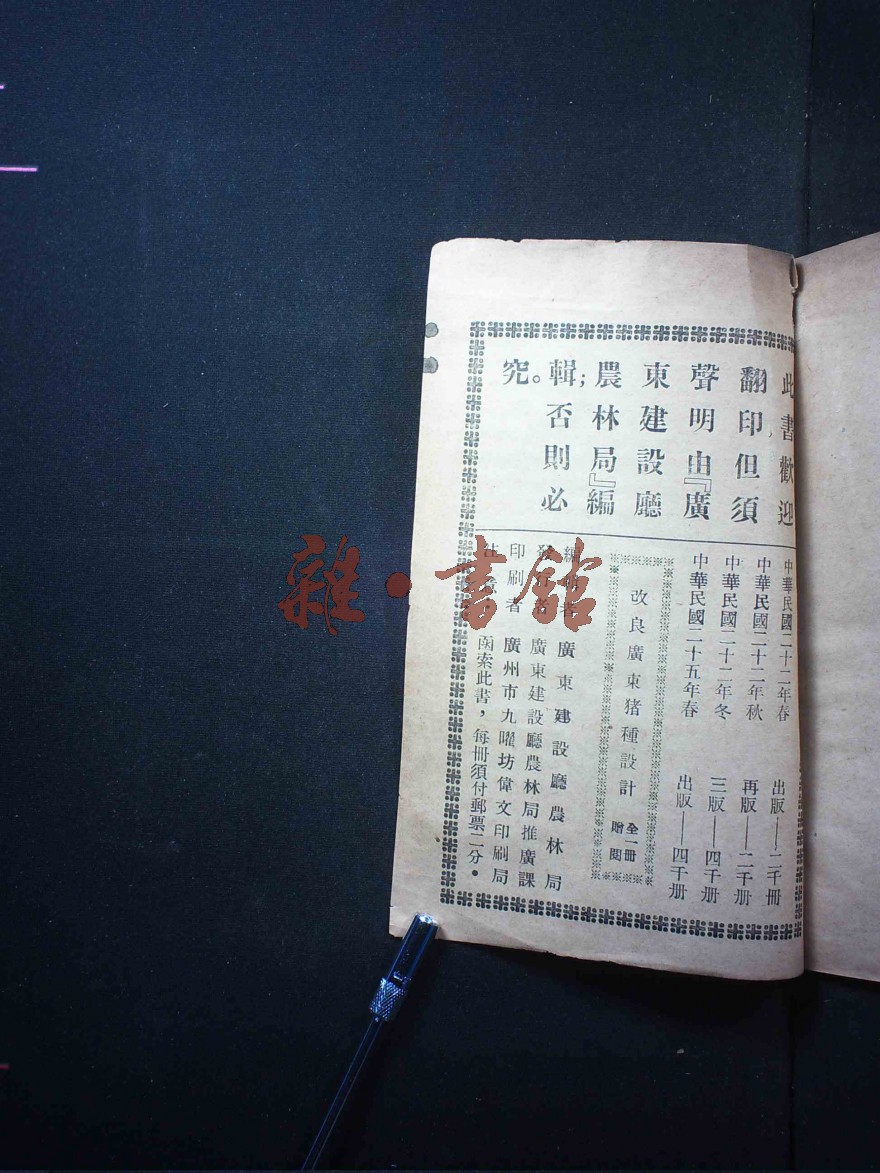 此書歡迎
翻印,但須
聲明由『廣
東建設廳
農林局』編
輯;否則必
究。
中華民國二十二年春 出版——二千冊
中華民國二十二年秋 再版——二千册
中華民國二十二年冬 三版——四千册
中華民國二十五年春 出版——四千册
改良廣東猪種設計 全一冊 贈閱
編輯者 廣東建設廳農林局
發行者 廣東建設廳農林局推廣課
印刷者 廣州市九曜坊偉文印刷局
注意 函索此書,每冊須付郵票二分。
雜·書館